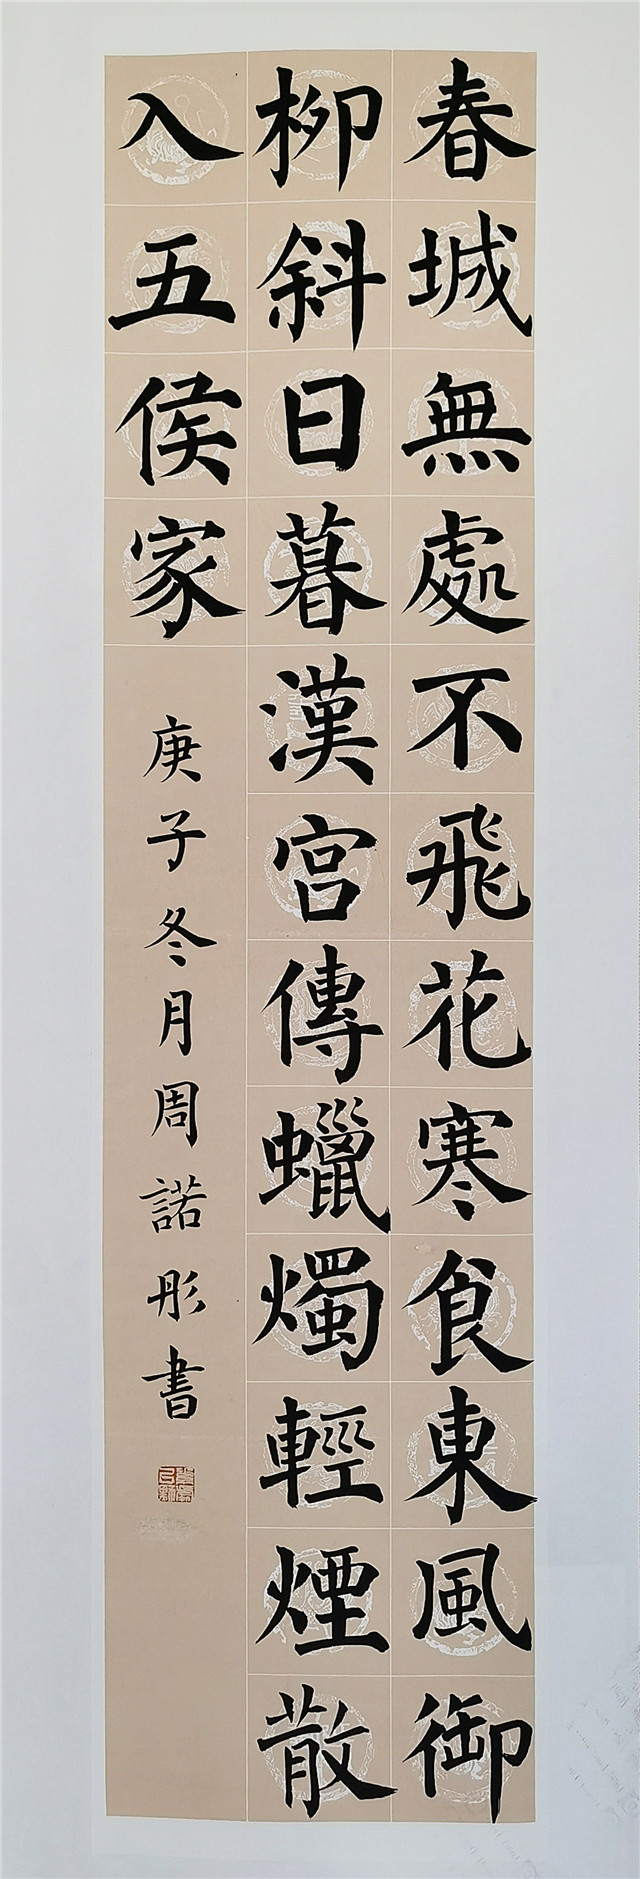 春城無處不飛花寒食東風御
柳斜日暮漢宮傳蠟燭輕煙散
入五侯家
庚子冬月周諾彤書